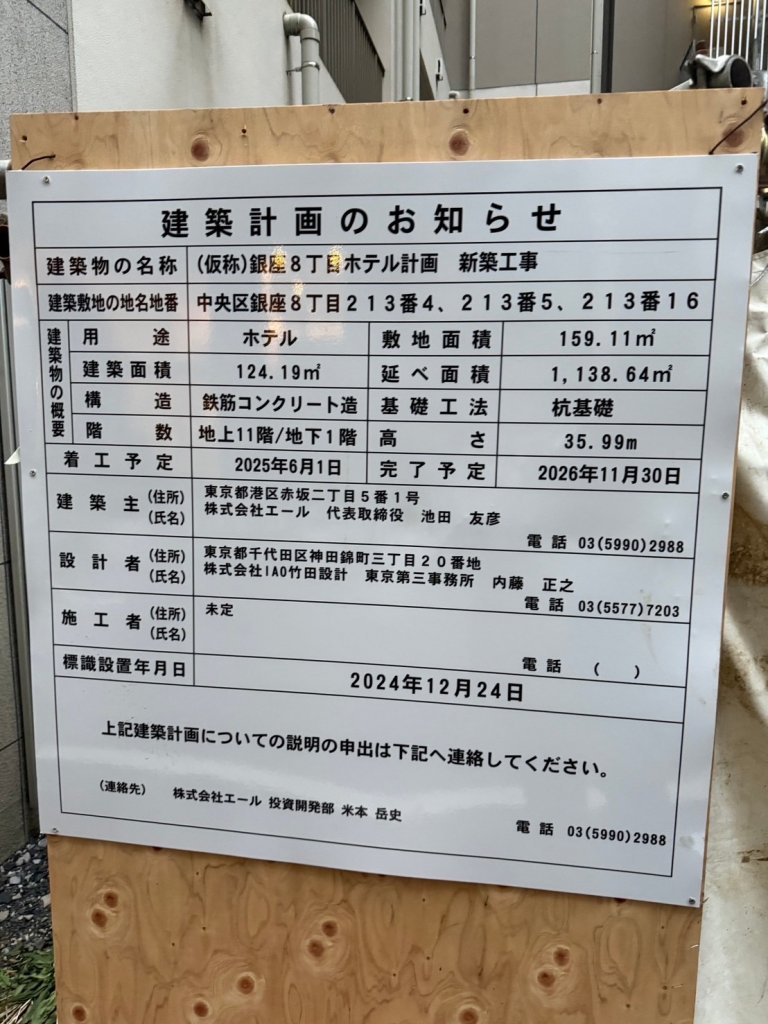 建築計画のお知らせ
建築物の名称 (仮称)銀座8丁目ホテル計画 新築工事
建築敷地の地名地番 中央区銀座8丁目213番4、213番5、213番16
建築物の概要
用途 ホテル 敷地面積 159.11㎡
建築面積 124.19㎡ 延べ面積 1,138.64㎡
構造 鉄筋コンクリート造 基礎工法 杭基礎
階数 地上11階/地下1階 高さ 35.99m
着工予定 2025年6月1日 完了予定 2026年11月30日
建築主 (住所) 東京都港区赤坂二丁目5番1号
(氏名) 株式会社エール 代表取締役 池田 友彦
電話 03(5990)2988
設計者 (住所) 東京都千代田区神田錦町三丁目20番地
(氏名) 株式会社IAO竹田設計 東京第三事務所 内藤 正之
電話 03(5577)7203
施工者 (住所) 未定
(氏名)
電話 ( )
標識設置年月日 2024年12月24日
上記建築計画についての説明の申出は下記へ連絡してください。
(連絡先) 株式会社エール 投資開発部 米本 岳史
電話 03(5990)2988